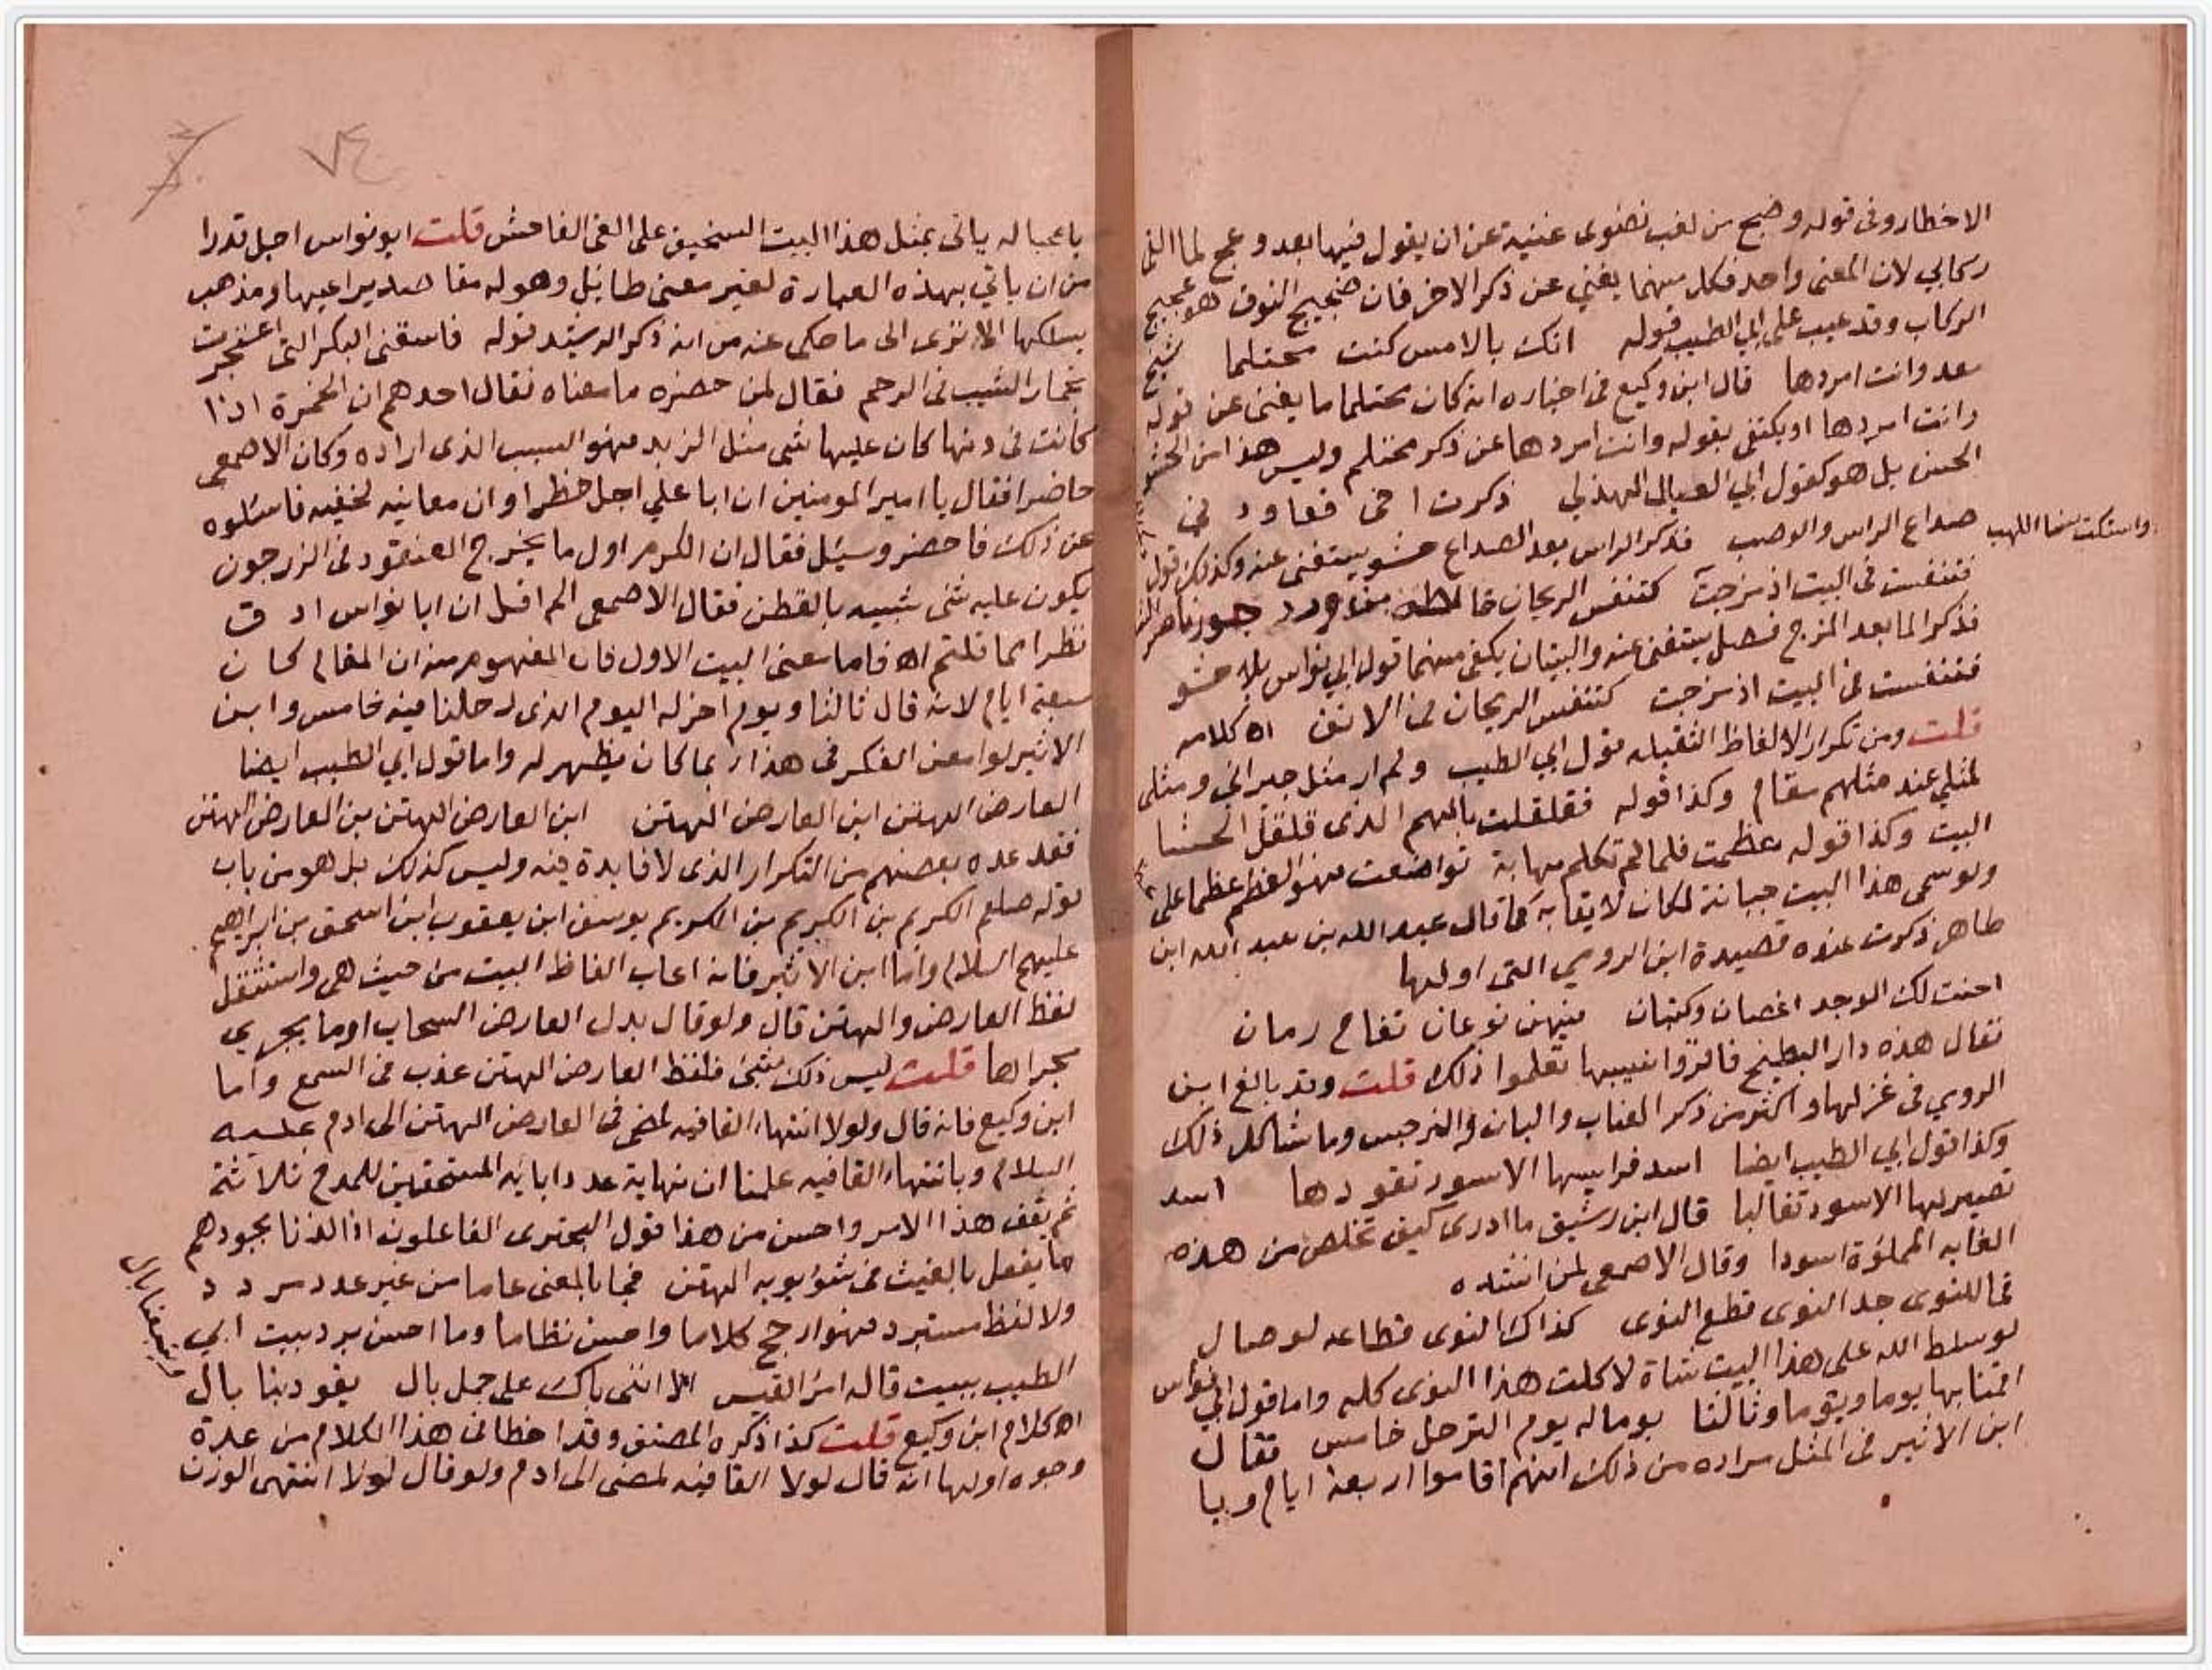 الاخطار وفى قوله وضج من لغب نضوى غنية عن ان يقول فيها بعد وعج لما القا
ركابي لان المعنى واحد فكل منهما يغني عن ذكر الاخر فان ضجيج النوق هو عجيج
الركاب وقد عيب على ابي الطيب قوله انك بالامس كنت محتلما شيخ
معد وانت امردها قال ابن وكيع فى اخباره انه كان محتلما ما يغنى عن قوله
وانت امردها او يكتفى بقوله وانت امردها عن ذكر محتلم وليس هذا من الحشو
الحسن بل هو كقول ابي العيال الهذلي ذكرت اخى فعاودني
صداع الراس والوصب فذكر الراس بعد الصداع حشو يستغنى عنه وكذلك قول
واستكت منا اللهب
فتنفست فى البيت اذ مزجت كتنفس الريحان
فذكر الما بعد المزج فضل يستغنى عنه والبيتان يكفى منهما قول ابي نواس بلا حشو
فتنفست فى البيت اذ مزجت كتنفس الريحان فى الانف اه كلامه
قلت ومن تكرار الالفاظ الثقيله قول ابي الطيب ولم ار مثل جيراني ومثلى
لمثلي عند مثلهم مقام وكذا قوله فقلقلت بالهم الذى قلقل الحشا
البيت وكذا قوله عظمت فلما لم تكلم مهابة تواضعت وهو العظم عظما على
ولو سمى هذا البيت جبانة لكان لايقا به كما قال عبيد الله بن عبد الله ابن
طاهر ذكرت عنده قصيدة ابن الرومي التى اولها
اجنت لك الوجد اغصان وكثبان فيهن نوعان تفاح رمان
فقال هذه دار البطيخ فاقرؤا نسيبها تعلموا ذلك قلت وقد بالغ ابن
الرومي فى غزلها واكثر من ذكر العناب والبان والنرجس وما شاكل ذلك
وكذا قول ابي الطيب ايضا اسد فرايسها الاسود تقودها اسد
تصير لها الاسود تعالبا قال ابن رشيق ما ادرى كيف تخلص من هذه
الغابه المملؤة اسودا وقال الاصمعى لمن انشده
فما للنوى جد النوى قطع النوى كذاك النوى قطاعه لوصال
لو سلط الله على هذا البيت شاة لاكلت هذا النوى كله واما قول ابي نواس
اقمنا بها يوما ويوما وثالثا يوما له يوم الترحل خامس فقال
ابن الاثير فى المثل مراده من ذلك انهم اقاموا اربعة ايام ويا
٧٤
يا عجبا له ياتى بمثل هذا البيت السخيف على العى الفاحش قلت ابو نواس اجل قدرا
من ان ياتي بهذه العبارة لغير معنى طايل وهو له مقاصد يراعيها ومذهب
يسلكها الا ترى الى ما حكى عنه من انه ذكر الرشيد قوله فاسقنى البكر التى اعتجرت
بخمار الشيب فى الرحم فقال لمن حضره ما معناه فقال احدهم ان الخمرة اذا
كانت فى دنها كان عليها شى مثل الزبد فهو السبب الذى اراده وكان الاصمعى
حاضرا فقال يا امير المومنين ان ابا علي اجل خطرا وان معانيه لخفيه فاسئلوه
عن ذلك فاحضر وسيل فقال ان الكرم اول ما يخرج العنقود فى الزرجون
يكون عليه شى شبيه بالقطن فقال الاصمعى الم اقل ان ابا نواس ادق
نظرا مما قلتم اه فاما معنى البيت الاول فان المفهوم منه ان المقام كان
سبعة ايام لانه قال ثالثا ويوم آخر له اليوم الذى رحلنا فيه خامس وابن
الاثير لو امعن الفكر فى هذا ربما كان يظهر له واما قول ابي الطيب ايضا
العارض الهتن ابن العارض الهتن ابن العارض الهتن بن العارض الهتن
فقد عده بعضهم من التكرار الذى لا فايدة فيه وليس كذلك بل هو من باب
قوله صلعم الكريم بن الكريم بن الكريم يوسف ابن يعقوب ابن اسحق بن ابراهيم
عليهم السلام واما ابن الاثير فانه اعاب الفاظ البيت من حيث هى واستثقل
لفظ العارض والهتن قال ولو قال بدل العارض السحاب او ما يجري
مجراها قلت ليس ذلك بشئ فلفظ العارض الهتن عذب فى السمع واما
ابن وكيع فانه قال ولولا انتهاء القافيه لمضى فى العارض الهتن الى ادم عليه
السلام وبانتهاء القافيه علمنا ان نهاية عدد ابايه المستحقين للمدح ثلاثة
ثم يقف هذا الامر واحسن من هذا قول البحترى الفاعلون اذا لذنا بجودهم
ما يفعل بالغيث فى شؤبوبه الهتن فجا بالمعنى عاما من غير عدد مردد
ولا لفظ مستبرد فهو ارجح كلاما واحسن نظاما وما احسن برد بيت ابي
الطيب ببيت قاله امرؤ القيس الا اننى باك على جمل بال يقود بنا بال
ويتبعنا بال
اه كلام ابن وكيع قلت كذا ذكره المصنف وقد اخطا فى هذا الكلام من عدة
وجوه اولها انه قال لولا القافيه لمضى الى ادم ولو قال لولا انتهى الوزن